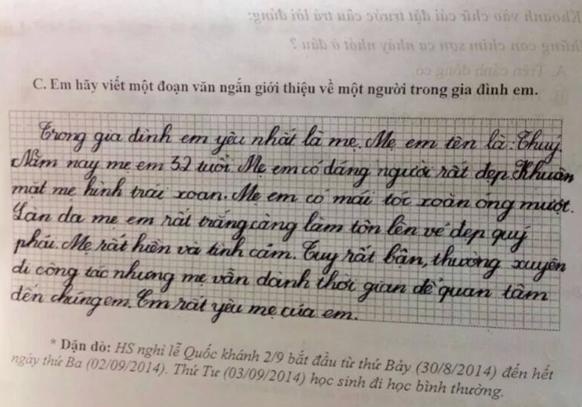 C. Em hãy viết một đoạn văn ngắn giới thiệu về một người trong gia đình em.
Trong gia đình em yêu nhất là mẹ. Mẹ em tên là: Thuý.
Năm nay mẹ em 32 tuổi. Mẹ em có dáng người rất đẹp. Khuôn
mặt mẹ hình trái xoan. Mẹ em có mái tóc xoăn óng mượt.
Làn da mẹ em rất trắng càng làm tôn lên vẻ đẹp quý
phái. Mẹ rất hiền và tình cảm. Tuy rất bận, thường xuyên
đi công tác nhưng mẹ vẫn dành thời gian để quan tâm
đến chúng em. Em rất yêu mẹ của em.
* Dặn dò: HS nghỉ lễ Quốc khánh 2/9 bắt đầu từ thứ Bảy (30/8/2014) đến hết
ngày thứ Ba (02/09/2014). Thứ Tư (03/09/2014) học sinh đi học bình thường.